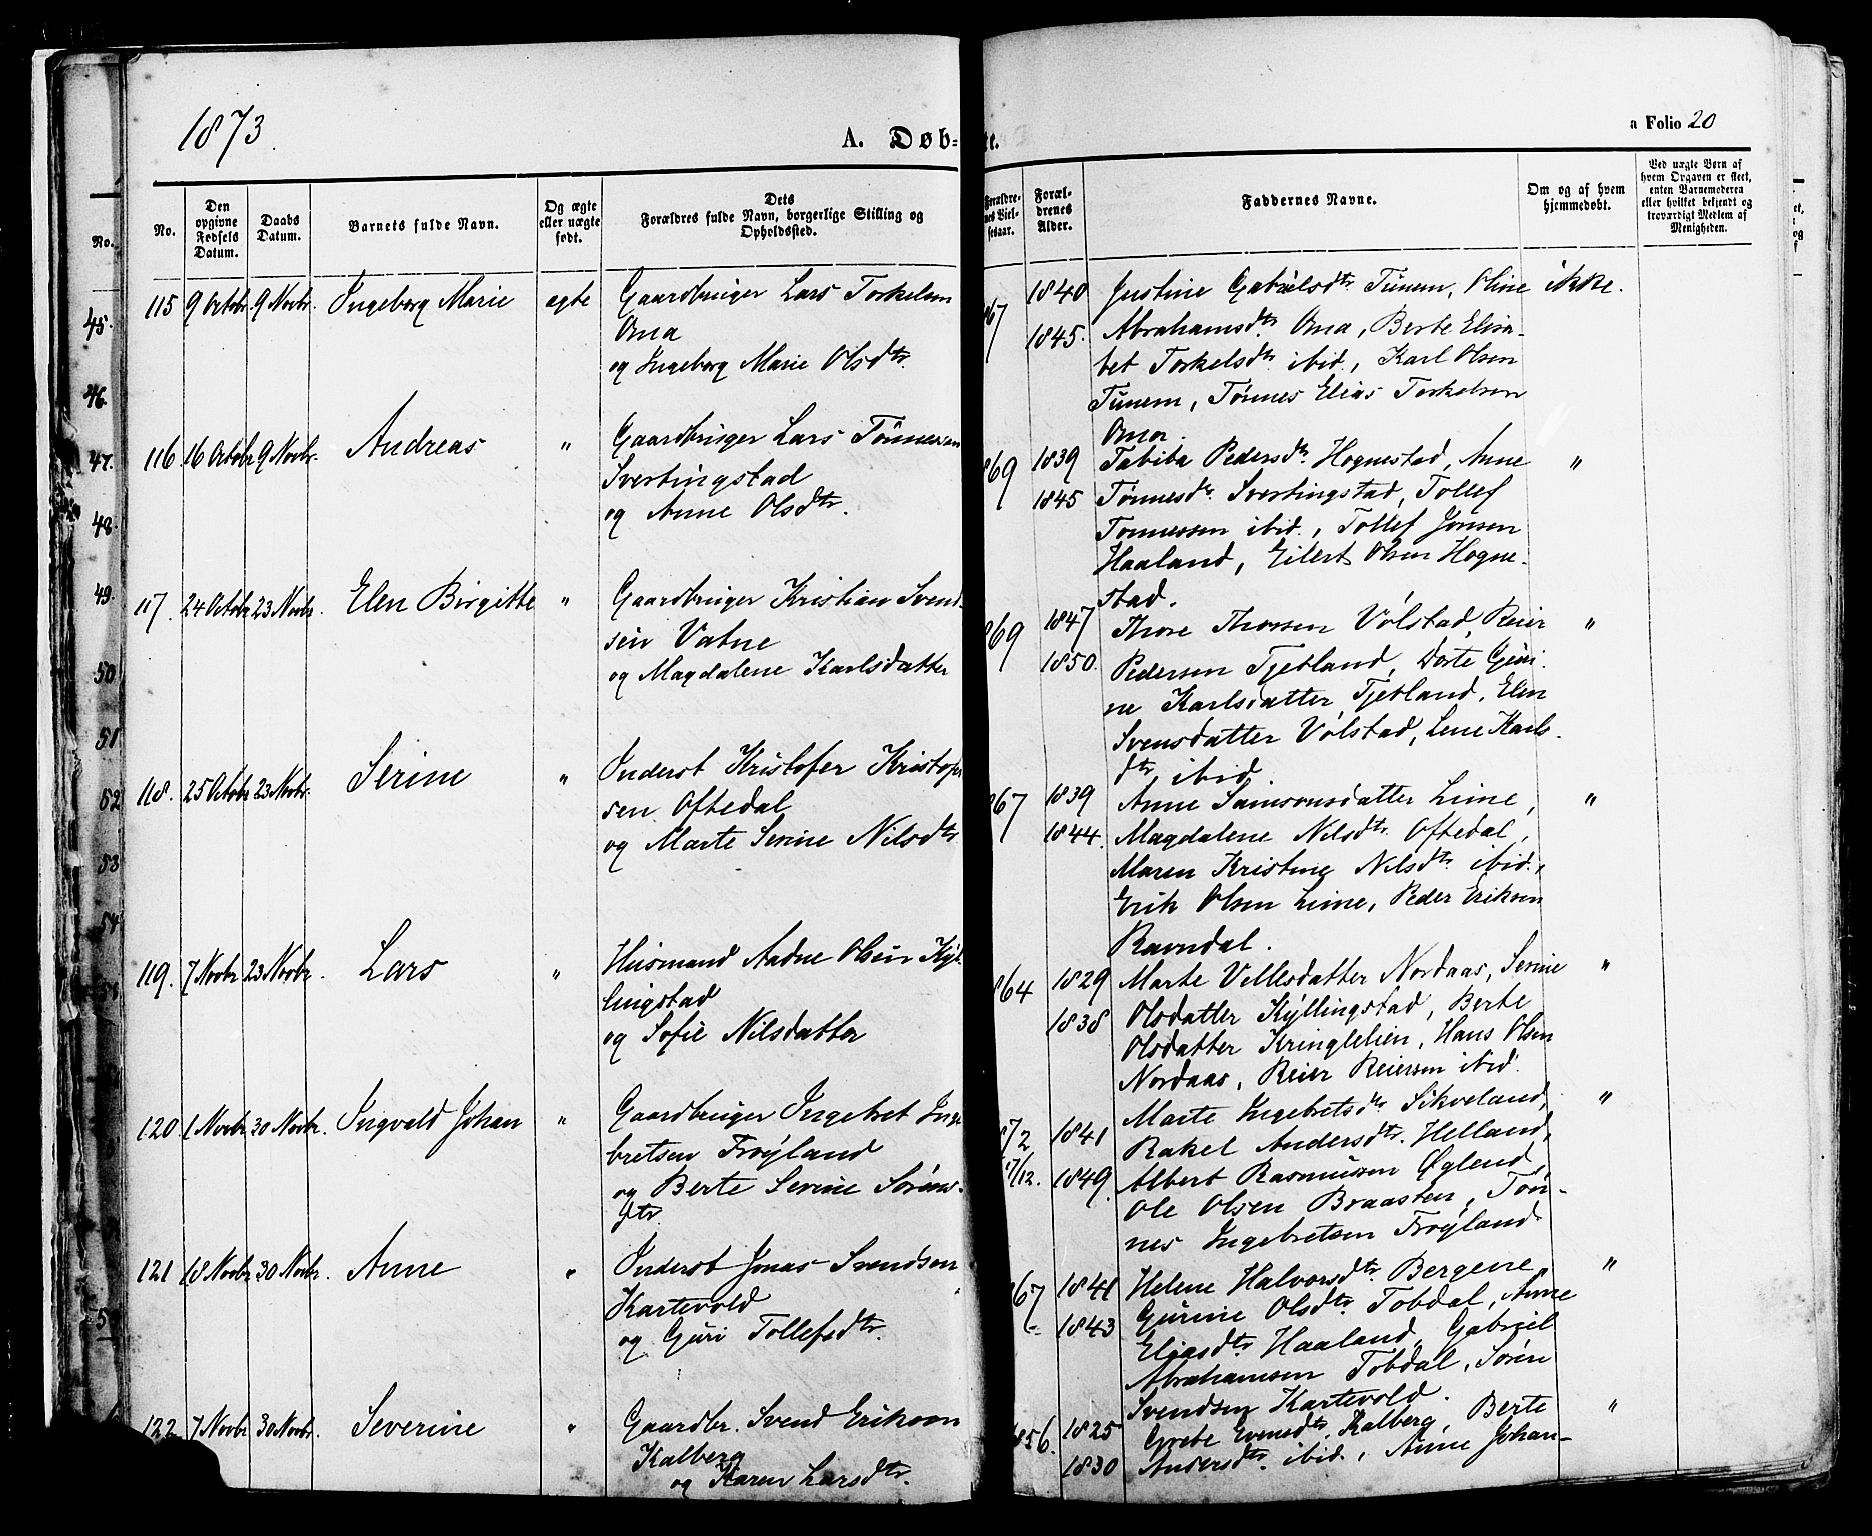 1873.
A. Døb-
te.
a Folio 20
No.
No.
Den opgivne Fødsels Datum.
Daabs Datum.
Barnets fulde Navn.
Og ægte eller uægte født.
Dets Forældres fulde Navn, borgerlige Stilling og Opholdssted.
Forældrenes Alder.
Faddernes Navne.
Om og af hvem hjemmedøbt.
Ved uægte Børn af hvem Opgaven er skeet, enten Barnemoderen eller hvilket bekjendt og troværdigt Medlem af Menigheden.
45.
46.
47.
48.
49.
50
51
52
53
54
115 9 Octobr. 9 Novbr. Ingeborg Marie ægte Gaardbruger Lars Torkelsen
Oma
og Ingeborg Marie Olsdtr.
67 1840 Justine Gabrielsdtr. Tunem, Oline ikke.
1845. Abrahamsdtr. Oma, Berte Elisa-
bet Torkelsdtr. ibid., Karl Olsen
Tunem, Tønnes Elias Torkelsen
Oma.
116. 16 Octobr 9 Novbr. Andreas " Gaardbruger Lars Tønnesen
Svertingstad
og Anne Olsdtr.
869 1839 Tabita Pedersdtr. Hognestad, Anne "
1845 Tønnesdtr. Svertingstad, Tollef
Tønnessen ibid., Tollef Jonsen
Haaland, Eilert Olsen Hogne-
stad.
117. 24 Octobr 23 Novbr. Elen Birgitte " Gaardbruger Kristian Svend-
sen Vatne
og Magdalene Karlsdatter
869 1847 Thore Thorsen Vølstad, Reier "
1850. Pedersen Tjetland, Dorte Guri-
ne Karlsdatter Tjetland, Elen
Svensdatter Vølstad, Lene Karls-
dtr. ibid.
118. 25 Octobr 23 Novbr. Serine " Inderst Kristofer Kristof
sen Oftedal
og Marte Serine Nilsdtr
867 1839 Anne Samsonsdatter Lime, "
1844. Magdalene Nilsdtr. Oftedal,
Maren Kristine Nilsdtr. ibid.,
Erik Olsen Lime, Peder Eriksen
Ravndal.
119. 7 Novbr 23 Novbr. Lars " Husmand Aadne Olsen Kyl-
lingstad
og Sofie Nilsdatter
864 1829 Marte Vellesdatter Nordaas, Serine "
1838 Olsdatter Kyllingstad, Berte
Olsdatter Kringlelien, Hans Olsen
Nordaas, Reier Reiersen ibid.
120 1 Novbr 30 Novbr. Ingvald Johan " Gaardbruger Ingebret Inge
bretsen Frøyland
og Berte Serine Sørens-
dtr.
Marte Ingebretsdtr. Sikveland, "
1841 Rakel Andersdtr. Helland,
/12. 1849. Albert Rasmussen Øglend,
Ole Olsen Braasten, Tøn-
nes Ingebretsen Frøyland
121 18 Novbr 30 Novbr. Anne " Inderst Jonas Svendsen
Kartevold
og Guri Tollefsdtr.
867 1841 Helene Halvorsdtr. Bergene, "
1843 Gurine Olsdtr. Tobdal, Anne
Eliasdtr. Haaland, Gabriel
Abrahamsen Tobdal, Søren
Svendsen Kartevold.
122 7 Novbr 30 Novbr. Severine " Gaardbr. Svend Eriksen
Kalberg
og Karen Larsdtr.
856. 1825 Grete Evensdtr. Kalberg, Berte "
1830 Andersdtr. ibid., Anne Johan-